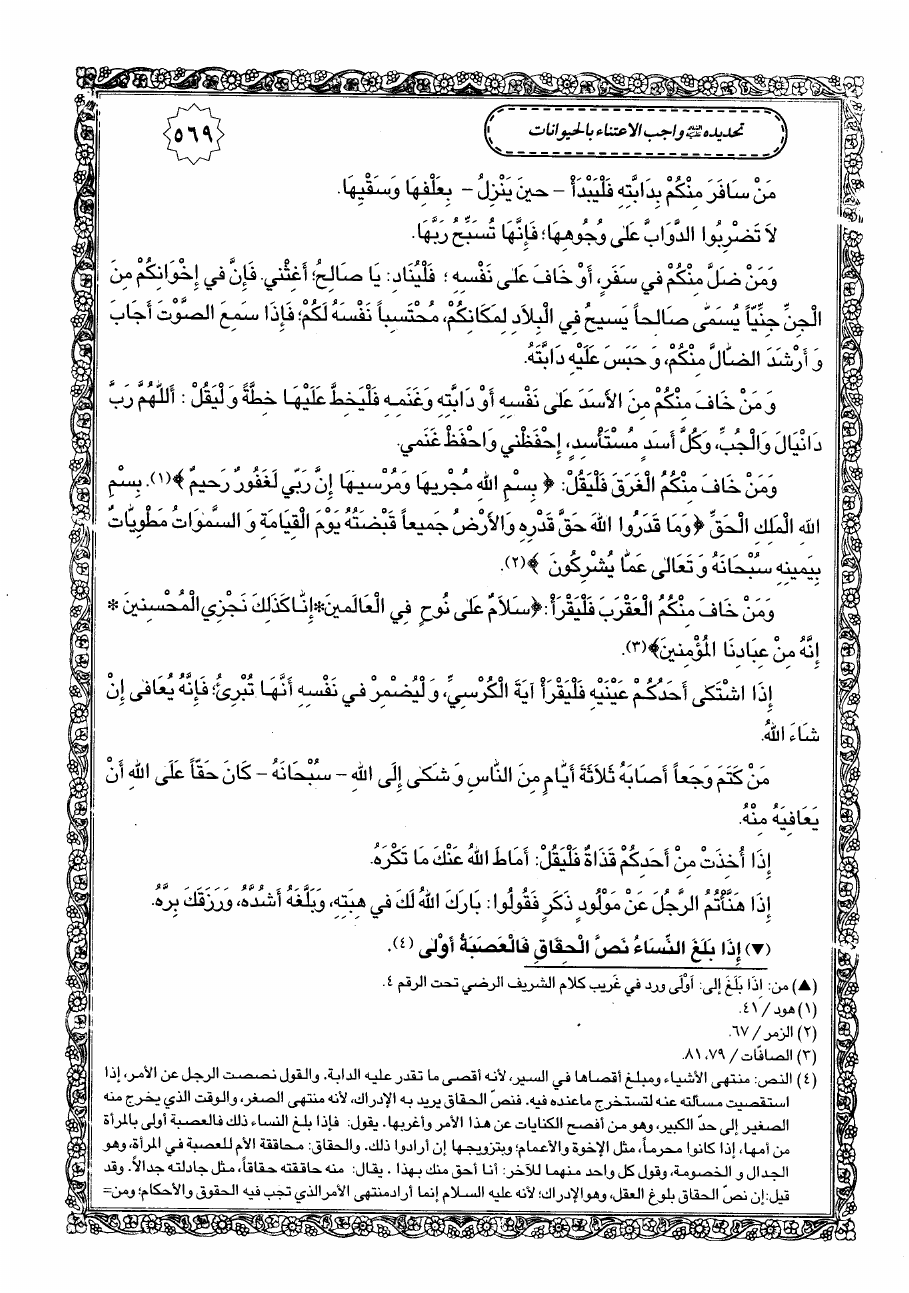 تحديده عليه السلام واجب الاعتناء بالحيوانات
٥٦٩
مَنْ سَافَرَ مِنْكُمْ بِدَابَّتِهِ فَلْيَبْدَأْ - حينَ يَنْزِلُ - بِعَلْفِهَا وَسَقْيِهَا.
لاَ تَضْرِبُوا الدَّوَابَّ عَلى وُجُوهِهَا؛ فَإِنَّهَا تُسَبِّحُ رَبَّهَا.
وَمَنْ ضَلَّ مِنْكُمْ في سَفَرٍ، أَوْ خَافَ عَلى نَفْسِهِ؛ فَلْيُنَادِ: يَا صَالِحُ؛ أَغِثْني. فَإِنَّ في إِخْوَانِكُمْ مِنَ
الْجِنِّ جِنِّيّاً يُسَمّى صَالِحاً يَسيحُ فِي الْبِلاَدِ لِمَكَانِكُمْ، مُحْتَسِباً نَفْسَهُ لَكُمْ؛ فَإِذَا سَمِعَ الصَّوْتَ أَجَابَ
وَ أَرْشَدَ الضَّالَّ مِنْكُمْ، وَ حَبَسَ عَلَيْهِ دَابَّتَهُ.
وَ مَنْ خَافَ مِنْكُمْ مِنَ الأَسَدِ عَلى نَفْسِهِ أَوْ دَابَّتِهِ وَغَنَمِهِ فَلْيَخِطَّ عَلَيْهَا خِطَّةً وَ لْيَقُلْ : أَللّهُمَّ رَبَّ
دَانْيَالَ وَالْجُبِّ، وَكُلَّ أَسَدٍ مُسْتَأْسِدٍ، إِحْفَظْني وَاحْفَظْ غَنَمي.
وَمَنْ خَافَ مِنْكُمُ الْغَرَقَ فَلْيَقُلْ: ﴿ بِسْمِ اللهِ مُجْريهَا وَمُرْسيهَا إِنَّ رَبّي لَغَفُورٌ رَحيمٌ ﴾(١). بِسْمِ
اللهِ الْمَلِكِ الْحَقِّ ﴿وَمَا قَدَرُوا اللهَ حَقَّ قَدْرِهِ وَالأَرْضُ جَميعاً قَبْضَتُهُ يَوْمَ الْقِيَامَةِ وَ السَّموَاتُ مَطْوِيَّاتٌ
بِيَمينِهِ سُبْحَانَهُ وَ تَعَالى عَمَّا يُشْرِكُونَ ﴾(٢).
وَمَنْ خَافَ مِنْكُمُ الْعَقْرَبَ فَلْيَقْرَأْ:﴿سَلاَمٌ عَلى نُوحٍ فِي الْعَالَمينَ*إِنَّا كَذلِكَ نَجْزِي الْمُحْسِنينَ *
إِنَّهُ مِنْ عِبَادِنَا الْمُؤْمِنينَ﴾(٣).
إِذَا اشْتَكى أَحَدُكُمْ عَيْنَيْهِ فَلْيَقْرَأْ آيَةَ الْكُرْسِيِّ، وَ لْيُضْمِرْ في نَفْسِهِ أَنَّهَا تُبْرِئُ؛ فَإِنَّهُ يُعَافى إِنْ
شَاءَ اللهُ.
مَنْ كَتَمَ وَجَعاً أَصَابَهُ ثَلاَثَةَ أَيَّامٍ مِنَ النَّاسِ وَ شَكى إِلَى اللهِ - سُبْحَانَهُ - كَانَ حَقّاً عَلَى اللهِ أَنْ
يَعَافِيَهُ مِنْهُ.
إِذَا أُخِذَتْ مِنْ أَحَدِكُمْ قَذَاةٌ فَلْيَقُلْ: أَمَاطَ اللهُ عَنْكَ مَا تَكْرَهُ.
إِذَا هَنَّأْتُمُ الرَّجُلَ عَنْ مَوْلُودٍ ذَكَرٍ فَقُولُوا: بَارَكَ اللهُ لَكَ في هِبَتِهِ، وَبَلَّغَهُ أَشُدَّهُ، وَرَزَقَكَ بِرَّهُ.
(▼) إِذَا بَلَغَ النِّسَاءُ نَصَّ الْحِقَاقِ فَالْعَصَبَةُ أَوْلى (٤).
(▲) من: إِذَا بَلَغَ إلى: أَوْلى ورد في غريب كلام الشريف الرضي تحت الرقم ٤.
(١) هود / ٤١.
(٢) الزمر / ٦٧.
(٣) الصافّات / ٧٩، ٨١.
(٤) النص: منتهى الأشياء ومبلغ أقصاها في السير، لأنه أقصى ما تقدر عليه الدابة. والقول نصصت الرجل عن الأمر، إذا
استقصيت مسألته عنه لتستخرج ماعنده فيه. فنصّ الحقاق يريد به الإدراك، لأنه منتهى الصغر، والوقت الذي يخرج منه
الصغير إلى حدّ الكبير، وهو من أفصح الكنايات عن هذا الأمر وأغربها. يقول: فإذا بلغ النساء ذلك فالعصبة أولى بالمرأة
من أمها، إذا كانوا محرماً، مثل الإخوة والأعمام؛ وبتزويجها إن أرادوا ذلك. والحقاق: محاقّة الأم للعصبة في المرأة، وهو
الجدال و الخصومة، وقول كل واحد منهما للآخر: أنا أحق منك بهذا . يقال: منه حاققته حقاقاً، مثل جادلته جدالاً. وقد
قيل:إن نصّ الحقاق بلوغ العقل، وهوالإدراك؛ لأنه عليه السلام إنما أرادمنتهى الأمرالذي تجب فيه الحقوق والأحكام؛ ومن=